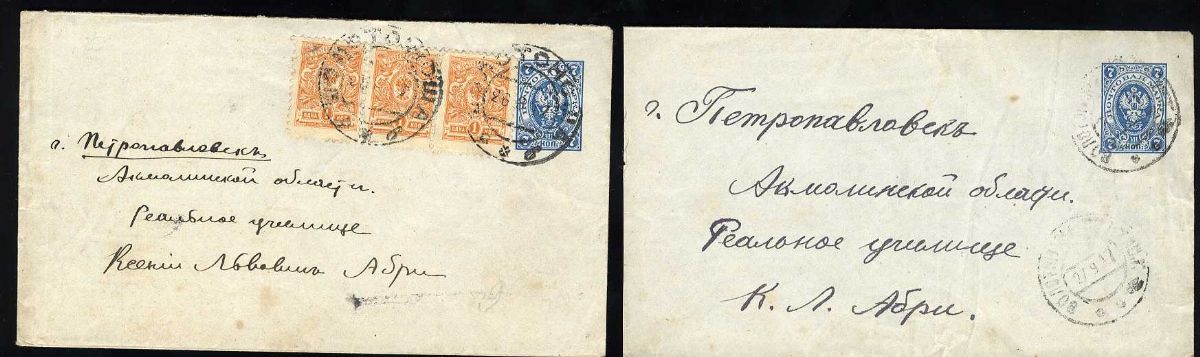 г. Петропавловскъ
Акмолинской области.
Реальное училище
Ксеніи Львовнѣ Абри
7
7
г. Петропавловскъ
Акмолинской области.
Реальное училище
К. Л. Абри.
7
7
ПОЧТОВАЯ МАРКА
7 7